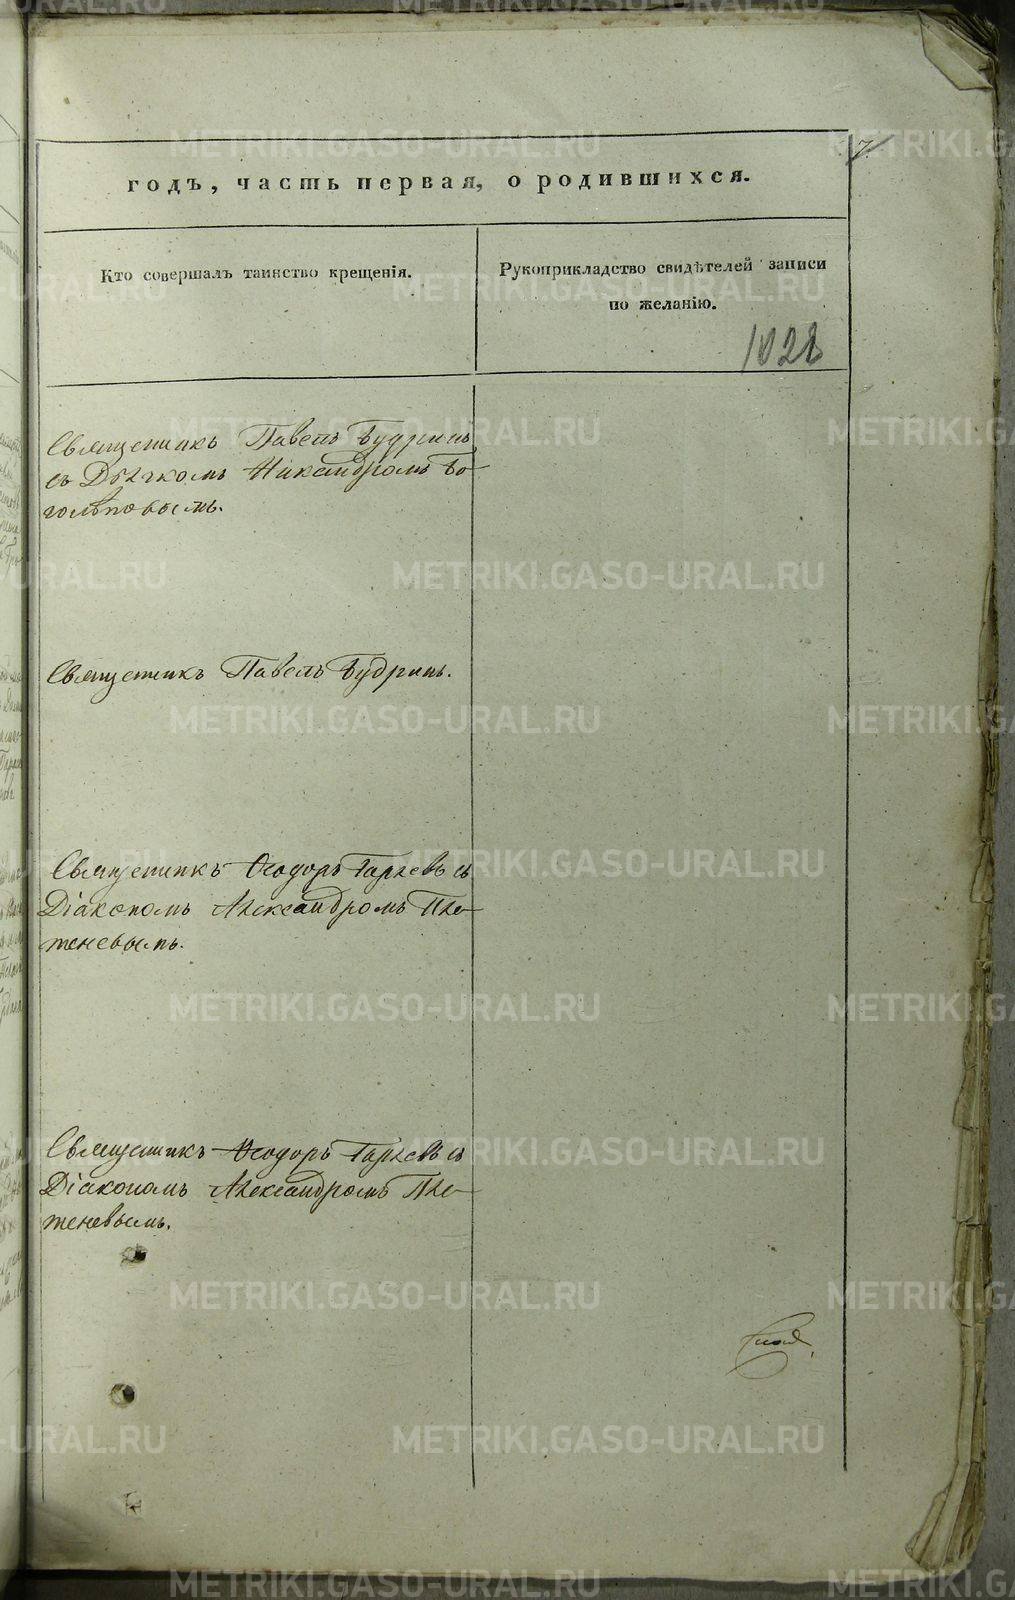 годъ, часть первая, о родившихся.
7
Кто совершалъ таинство крещенія.
Рукоприкладство свидѣтелей записи
по желанію.
1028
Священникъ Павелъ Будринъ
съ Дьячкомъ Никандромъ Бо-
голѣповымъ.
Священникъ Павелъ Будринъ.
Священникъ Ѳеодоръ Гаряевъ съ
Діакономъ Александромъ Пле-
теневымъ.
Священникъ Ѳеодоръ Гаряевъ съ
Діакономъ Александромъ Пле-
теневымъ.
METRIKI.GASO-URAL.RU